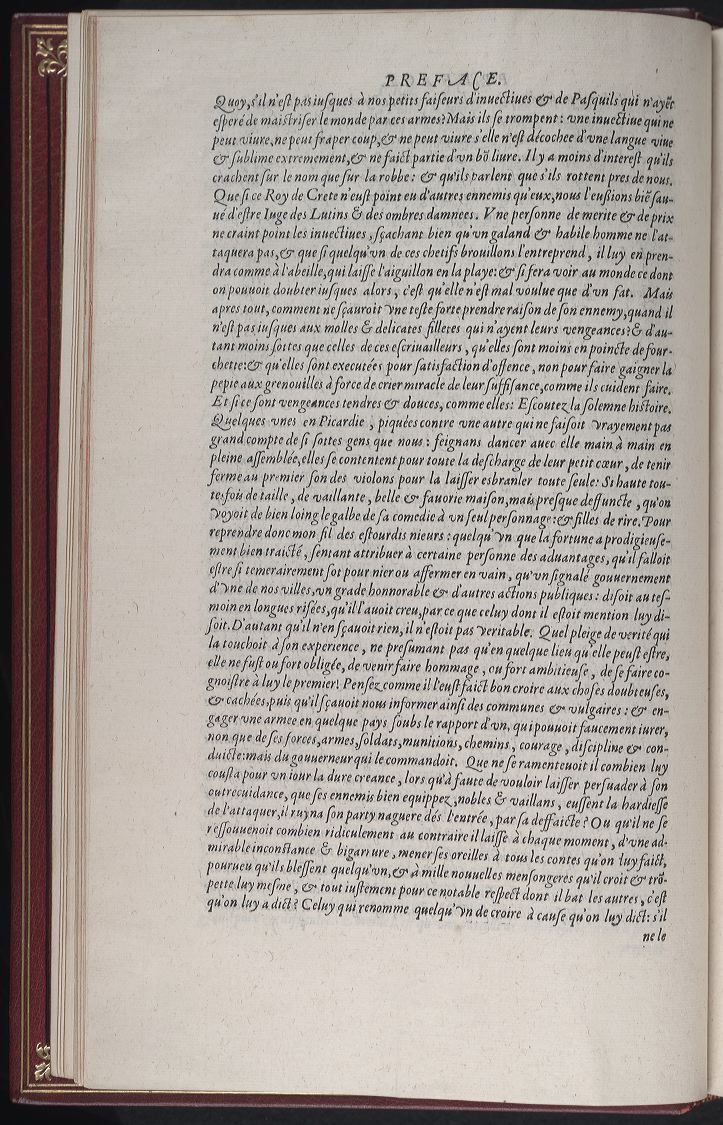 PREFACE.
Quoy, s'il n'eſt pas iuſques à nos petits faiſeurs d'inuectiues & de Paſquils qui n'ayẽt
eſperé de maiſtriſer le monde par ces armes? Mais ils ſe trompent: vne inuectiue qui ne
peut viure, ne peut fraper coup, & ne peut viure s'elle n'eſt décochee d'vne langue viue
& ſublime extremement, & ne faict partie d'vn bõ liure. Il y a moins d'intereſt qu'ils
crachent ſur le nom que ſur la robbe: & qu'ils parlent que s'ils rottent pres de nous.
Que ſi ce Roy de Crete n'euſt point eu d'autres ennemis qu'eux, nous l'euſsions biẽ ſau-
ué d'eſtre Iuge des Lutins & des ombres damnees. Vne perſonne de merite & de prix
ne craint point les inuectiues, ſçachant bien qu'vn galand & habile homme ne l'at-
taquera pas, & que ſi quelqu'vn de ces chetifs brouillons l'entreprend, il luy en pren-
dra comme à l'abeille, qui laiſſe l'aiguillon en la playe: & ſi fera voir au monde ce dont
on pouuoit doubter iuſques alors, c'eſt qu'elle n'eſt mal voulue que d'vn fat. Mais
apres tout, comment ne ſçauroit vne teſte forte prendre raiſon de ſon ennemy, quand il
n'eſt pas iuſques aux molles & delicates filletes qui n'ayent leurs vengeances? & d'au-
tant moins ſottes que celles de ces eſcriuailleurs, qu'elles ſont moins en poincte de four-
chette: & qu'elles ſont executées pour ſatisfaction d'offence, non pour faire gaigner la
pepie aux grenouilles à force de crier miracle de leur ſuffiſance, comme ils cuident faire.
Et ſi ce ſont vengeances tendres & douces, comme elles: Eſcoutez la ſolemne hiſtoire.
Quelques vnes en Picardie, piquées contre vne autre qui ne faiſoit vrayement pas
grand compte de ſi ſottes gens que nous: feignans dancer auec elle main à main en
pleine aſſemblée, elles ſe contentent pour toute la deſcharge de leur petit cœur, de tenir
ferme au premier ſon des violons pour la laiſſer esbranler toute ſeule: Si haute tou-
tesfois de taille, de vaillante, belle & fauorie maiſon, mais preſque deffuncte, qu'on
voyoit de bien loing le galbe de ſa comedie à vn ſeul perſonnage: & filles de rire. Pour
reprendre donc mon fil des eſtourdis nieurs: quelqu'vn que la fortune a prodigieuſe-
ment bien traicté, ſentant attribuer à certaine perſonne des aduantages, qu'il falloit
eſtre ſi temerairement ſot pour nier ou affermer en vain, qu'vn ſignalé gouuernement
d'vne de nos villes, vn grade honnorable & d'autres actions publiques: diſoit au teſ-
moin en longues riſées, qu'il l'auoit creu, par ce que celuy dont il eſtoit mention luy di-
ſoit. D'autant qu'il n'en ſçauoit rien, il n'eſtoit pas veritable. Quel pleige de verité qui
la touchoit à ſon experience, ne preſumant pas qu'en quelque lieu qu'elle peuſt eſtre,
elle ne fuſt ou fort obligée, de venir faire hommage, ou fort ambitieuſe, de ſe faire co-
gnoiſtre à luy le premier! Penſez comme il l'euſt faict bon croire aux choſes doubteuſes,
& cachées, puis qu'il ſçauoit nous informer ainſi des communes & vulgaires: & en-
gager vne armee en quelque pays ſoubs le rapport d'vn, qui pouuoit faucement iurer,
non que de ſes forces, armes, ſoldats, munitions, chemins, courage, diſcipline & con-
duicte: mais du gouuerneur qui le commandoit. Que ne ſe ramenteuoit il combien luy
couſta pour vn iour la dure creance, lors qu'à faute de vouloir laiſſer perſuader à ſon
outrecuidance, que ſes ennemis bien equippez, nobles & vaillans, euſſent la hardieſſe
de l'attaquer, il ruyna ſon party naguere dés l'entrée, par ſa deffaicte? Ou qu'il ne ſe
reſſouuenoit combien ridiculement au contraire il laiſſe à chaque moment, d'vne ad-
mirable inconſtance & bigarrure, mener ſes oreilles à tous les contes qu'on luy faict,
pourueu qu'ils bleſſent quelqu'vn, & à mille nouuelles menſongeres qu'il croit & trõ-
pette luy meſme, & tout iuſtement pour ce notable reſpect dont il bat les autres, c'eſt
qu'on luy a dict? Celuy qui renomme quelqu'vn de croire à cauſe qu'on luy dict: s'il
ne le